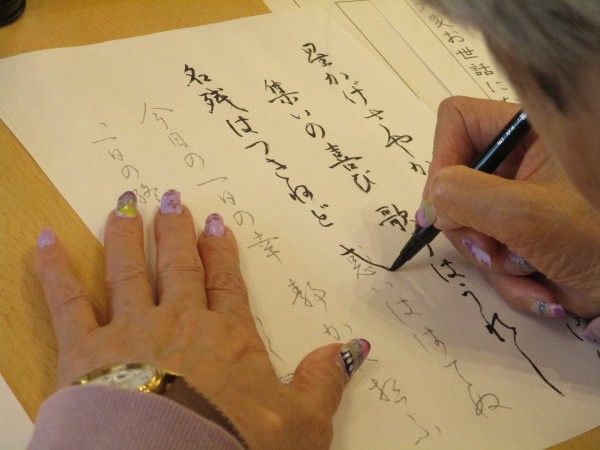 お世話に
星かげさやか
集いの喜び 歌 はうれし
名残はつきねど 惑いははてぬ
今日の一日の幸 静か 想ふ
日の